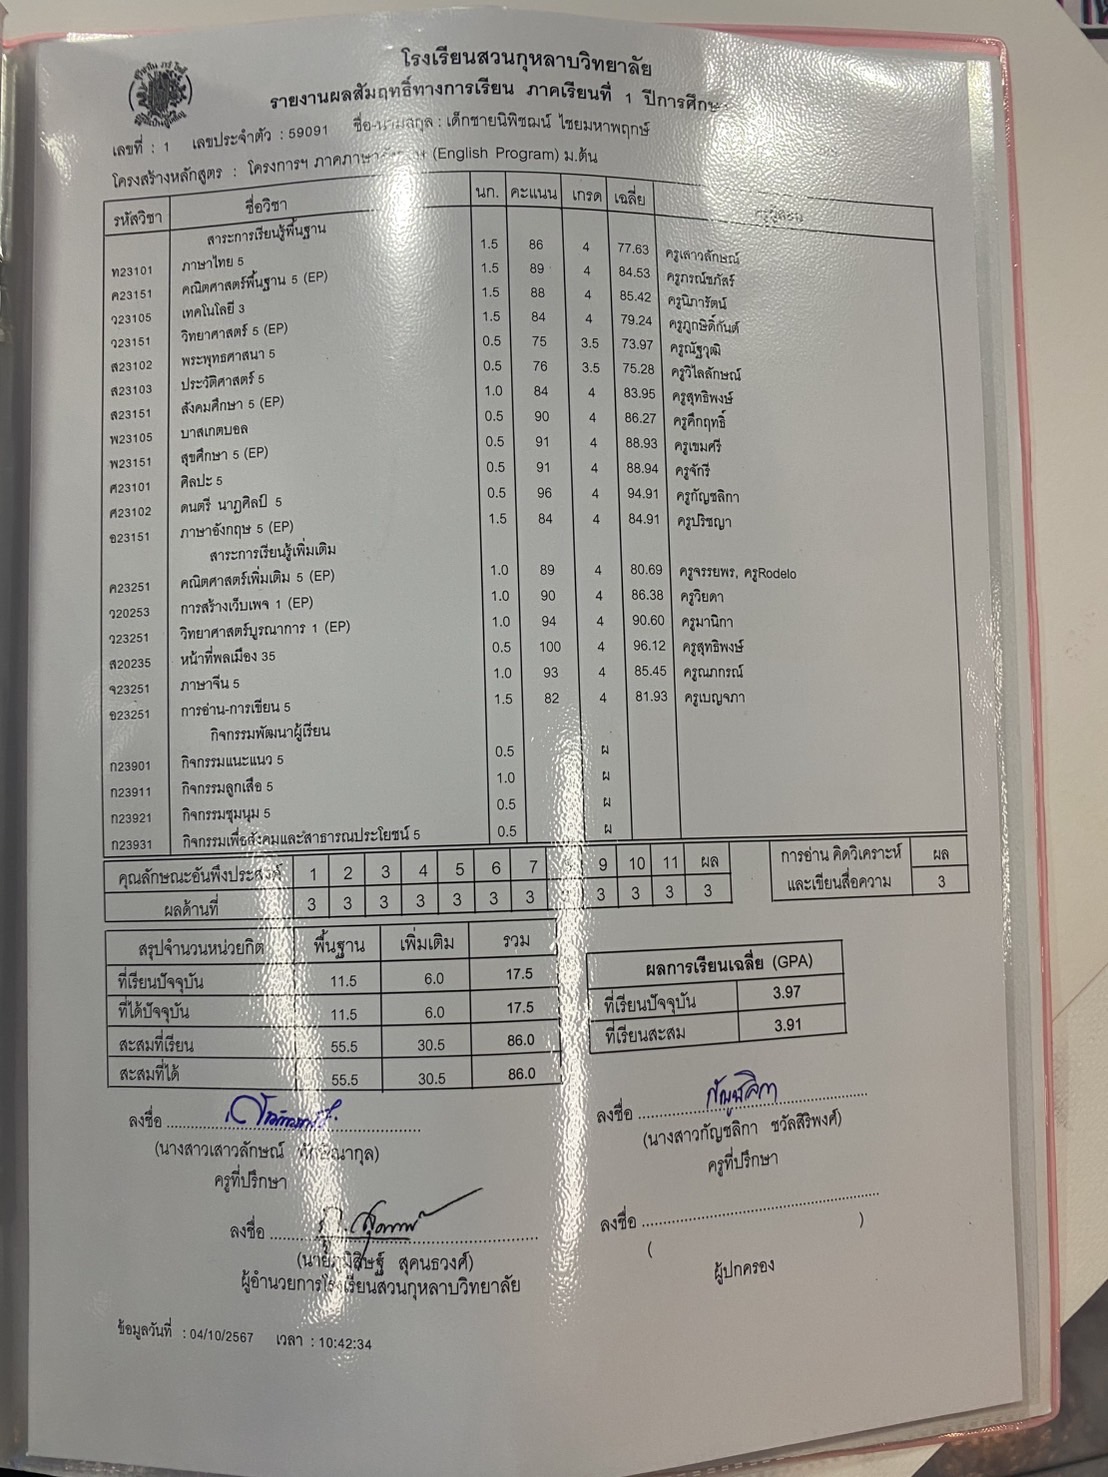 โรงเรียนสวนกุหลาบวิทยาลัย
รายงานผลสัมฤทธิ์ทางการเรียน ภาคเรียนที่ 1 ปีการศึกษา
เลขที่ : 1 เลขประจำตัว : 59091 ชื่อ-นามสกุล : เด็กชายนิพิชฌน์ ไชยมหาพฤกษ์
โครงสร้างหลักสูตร : โครงการฯ ภาคภาษาอังกฤษ (English Program) ม.ต้น
รหัสวิชา ชื่อวิชา นก. คะแนน เกรด เฉลี่ย ครูผู้สอน
สาระการเรียนรู้พื้นฐาน
ท23101 ภาษาไทย 5 1.5 86 4 77.63 ครูเสาวลักษณ์
ค23151 คณิตศาสตร์พื้นฐาน 5 (EP) 1.5 89 4 84.53 ครูภรณ์ชภัสร์
ว23105 เทคโนโลยี 3 1.5 88 4 85.42 ครูนิภารัตน์
ว23151 วิทยาศาสตร์ 5 (EP) 1.5 84 4 79.24 ครูภูกษิดิ์กันต์
ส23102 พระพุทธศาสนา 5 0.5 75 3.5 73.97 ครูณัฐวุฒิ
ส23103 ประวัติศาสตร์ 5 0.5 76 3.5 75.28 ครูวิไลลักษณ์
ส23151 สังคมศึกษา 5 (EP) 1.0 84 4 83.95 ครูสุทธิพงษ์
พ23105 บาสเกตบอล 0.5 90 4 86.27 ครูคึกฤทธิ์
พ23151 สุขศึกษา 5 (EP) 0.5 91 4 88.93 ครูเขมศรี
ศ23101 ศิลปะ 5 0.5 91 4 88.94 ครูจักรี
ศ23102 ดนตรี นาฏศิลป์ 5 0.5 96 4 94.91 ครูกัญชลิกา
อ23151 ภาษาอังกฤษ 5 (EP) 1.5 84 4 84.91 ครูปริชญา
สาระการเรียนรู้เพิ่มเติม
ค23251 คณิตศาสตร์เพิ่มเติม 5 (EP) 1.0 89 4 80.69 ครูจรรยพร, ครูRodelo
ว20253 การสร้างเว็บเพจ 1 (EP) 1.0 90 4 86.38 ครูวิยดา
ว23251 วิทยาศาสตร์บูรณาการ 1 (EP) 1.0 94 4 90.60 ครูมานิกา
ส20235 หน้าที่พลเมือง 35 0.5 100 4 96.12 ครูสุทธิพงษ์
จ23251 ภาษาจีน 5 1.0 93 4 85.45 ครูณภกรณ์
อ23251 การอ่าน-การเขียน 5 1.5 82 4 81.93 ครูเบญจภา
กิจกรรมพัฒนาผู้เรียน
ก23901 กิจกรรมแนะแนว 5 0.5 ผ
ก23911 กิจกรรมลูกเสือ 5 1.0 ผ
ก23921 กิจกรรมชุมนุม 5 0.5 ผ
ก23931 กิจกรรมเพื่อสังคมและสาธารณประโยชน์ 5 0.5 ผ
คุณลักษณะอันพึงประสงค์ 1 2 3 4 5 6 7 9 10 11 ผล
ผลด้านที่ 3 3 3 3 3 3 3 3 3 3 3
การอ่าน คิดวิเคราะห์ ผล
และเขียนสื่อความ 3
สรุปจำนวนหน่วยกิต พื้นฐาน เพิ่มเติม รวม
ที่เรียนปัจจุบัน 11.5 6.0 17.5
ที่ได้ปัจจุบัน 11.5 6.0 17.5
สะสมที่เรียน 55.5 30.5 86.0
สะสมที่ได้ 55.5 30.5 86.0
ผลการเรียนเฉลี่ย (GPA)
ที่เรียนปัจจุบัน 3.97
ที่เรียนสะสม 3.91
ลงชื่อ
(นางสาวเสาวลักษณ์)
ครูที่ปรึกษา
ลงชื่อ กัญชลิกา
(นางสาวกัญชลิกา ชวัลสิริพงศ์)
ครูที่ปรึกษา
ลงชื่อ
(นายภูมิสิษฐ์ สุคนธวงศ์)
ผู้อำนวยการโรงเรียนสวนกุหลาบวิทยาลัย
ลงชื่อ
( )
ผู้ปกครอง
ข้อมูลวันที่ : 04/10/2567 เวลา : 10:42:34